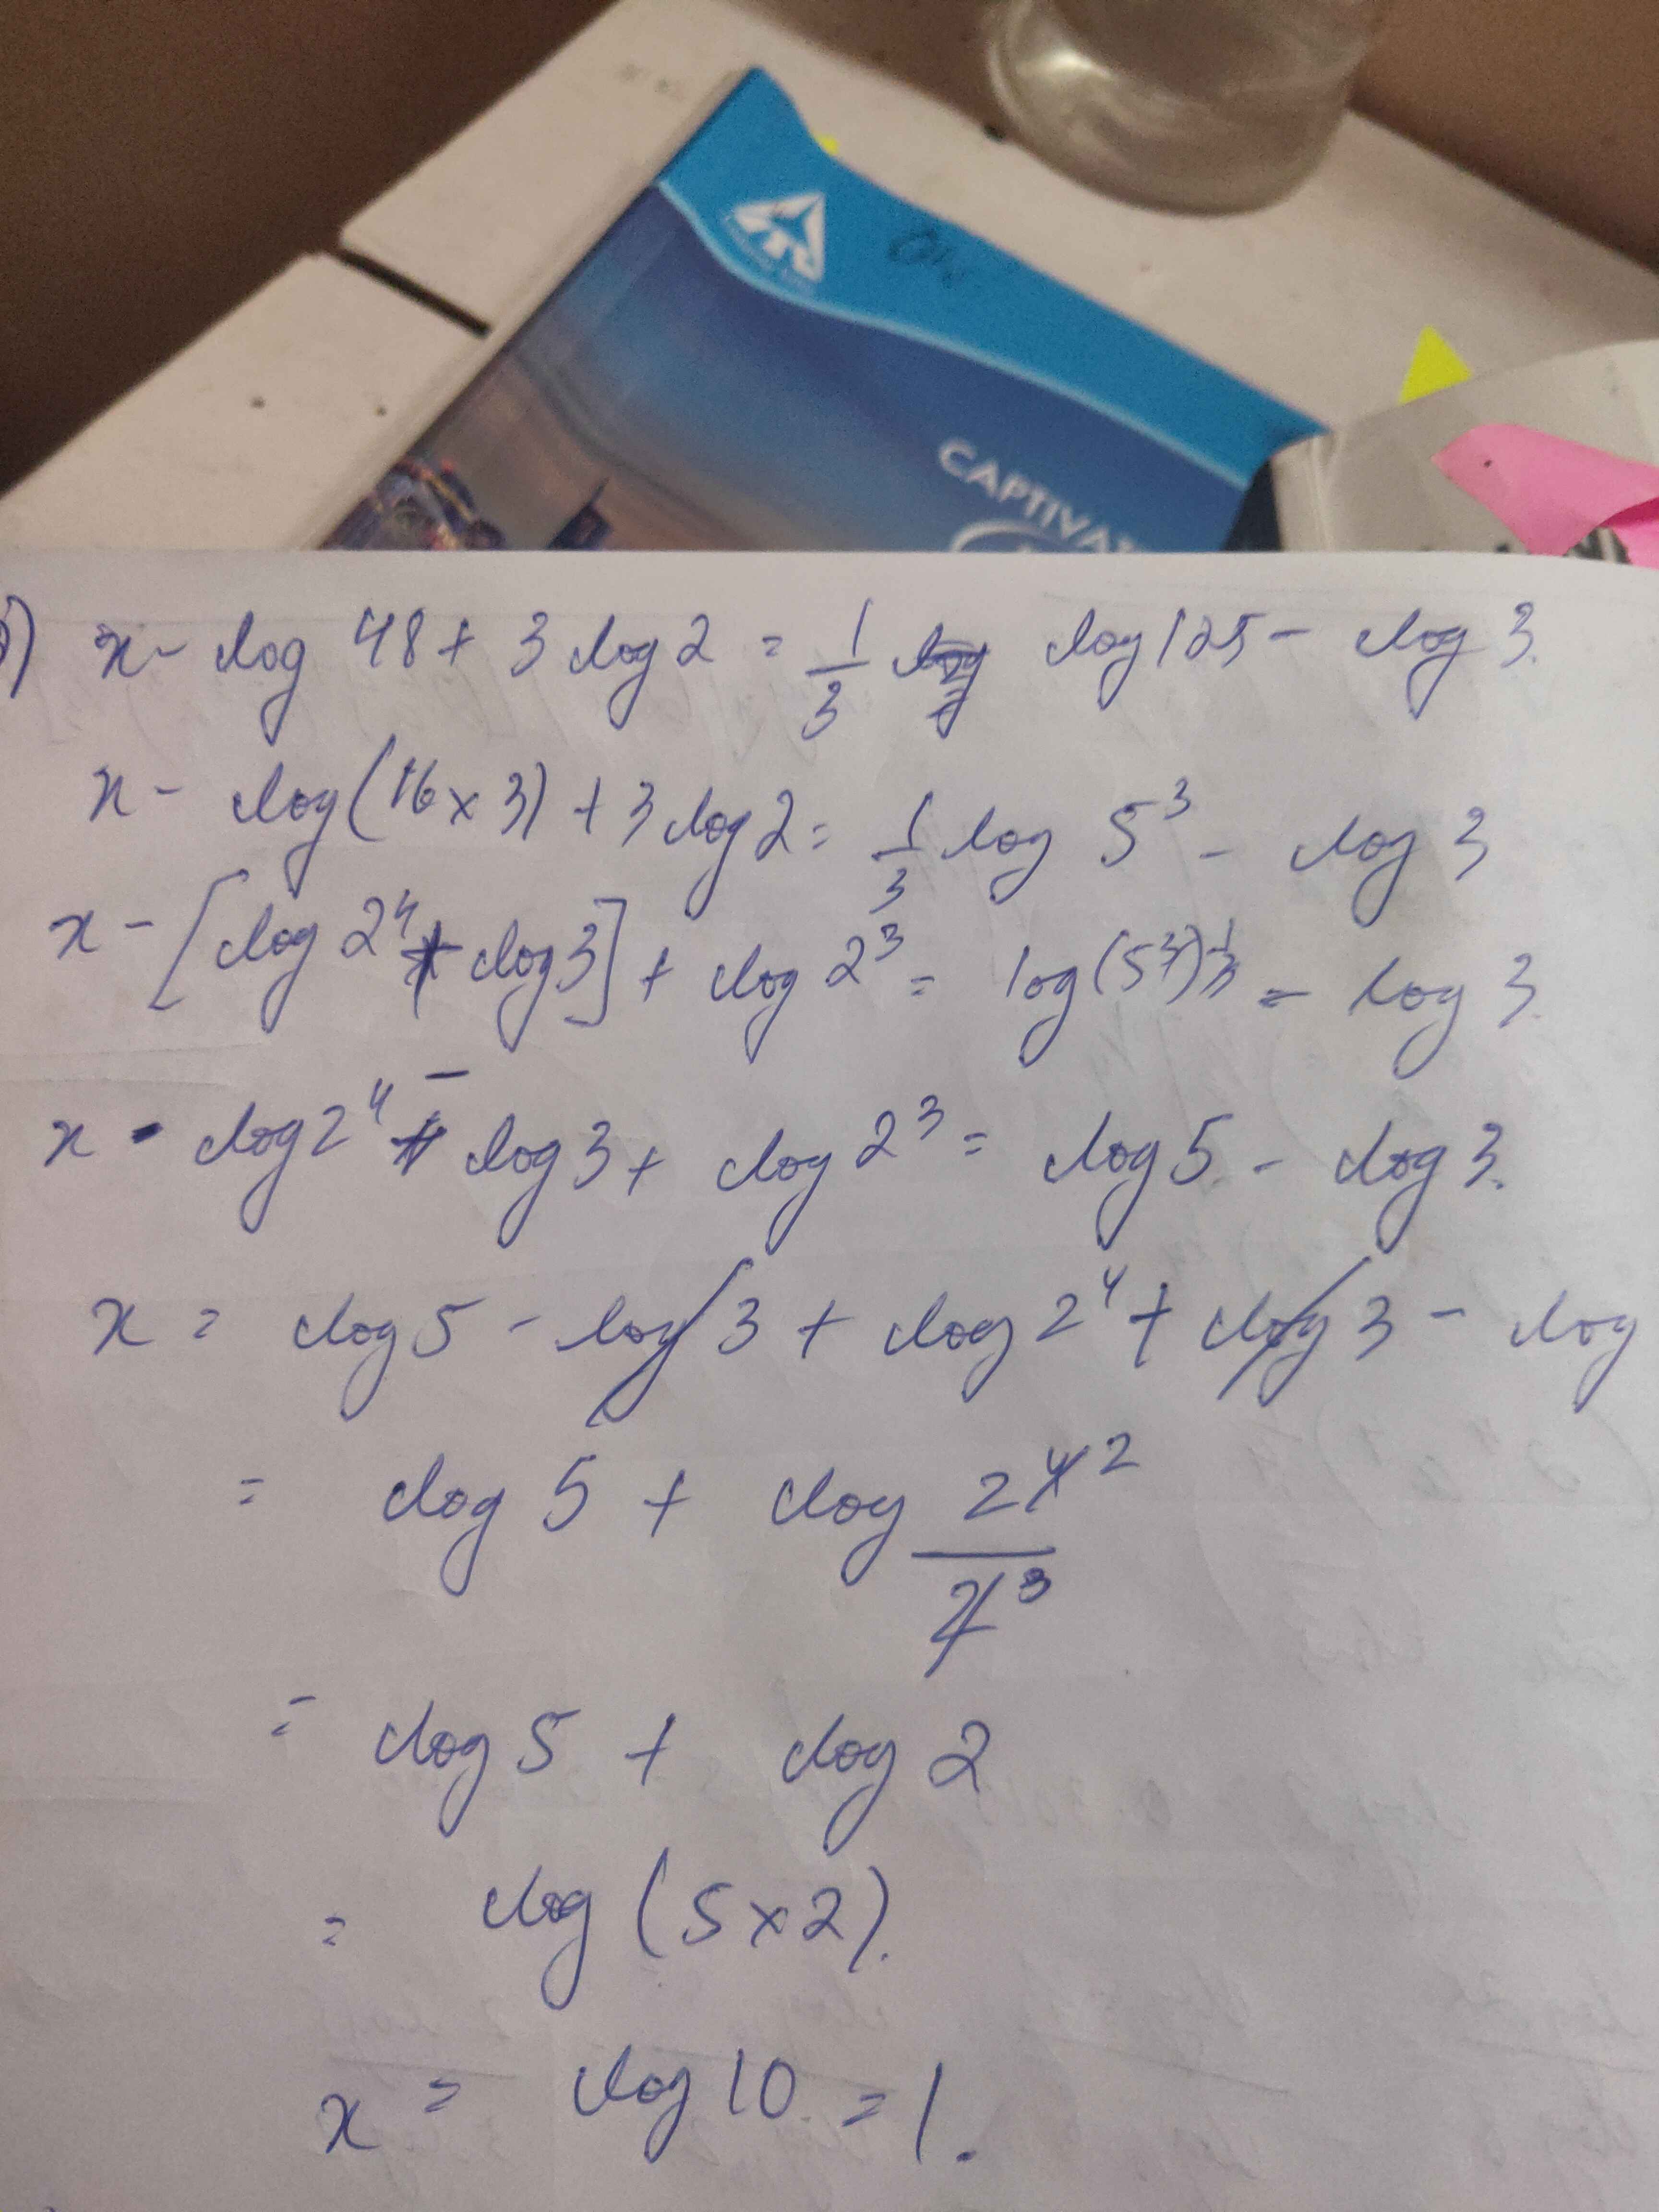 CAPTIVA
x - log 48 + 3 log 2 = 1/3 log 125 - log 3.
x - log(16 x 3) + 3 log 2 = 1/3 log 5³ - log 3
x - [log 2⁴ + log 3] + log 2³ = log(5³)^1/3 - log 3.
x - log 2⁴ - log 3 + log 2³ = log 5 - log 3.
x = log 5 - log 3 + log 2⁴ + log 3 - log
= log 5 + log 2⁴ 2 / 2³
= log 5 + log 2
= log (5 x 2).
x = log 10 = 1.